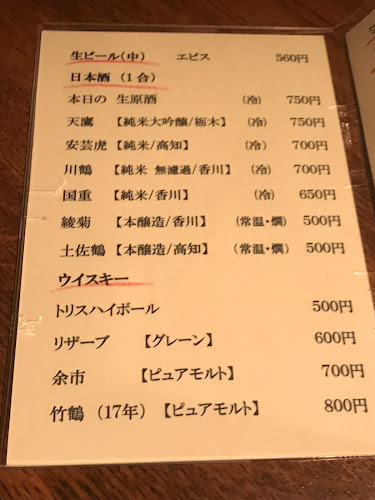 生ビール(中) エビス 560円
日本酒 (1合)
本日の 生原酒 (冷) 750円
天鷹 【純米大吟醸/栃木】 (冷) 750円
安芸虎【純米/高知】 (冷) 700円
川鶴 【純米 無濾過/香川】 (冷) 700円
国重 【純米/香川】 (冷) 650円
綾菊 【本醸造/香川】 (常温・燗) 500円
土佐鶴【本醸造/高知】 (常温・燗) 500円
ウイスキー
トリスハイボール 500円
リザーブ 【グレーン】 600円
余市 【ピュアモルト】 700円
竹鶴 (17年) 【ピュアモルト】 800円